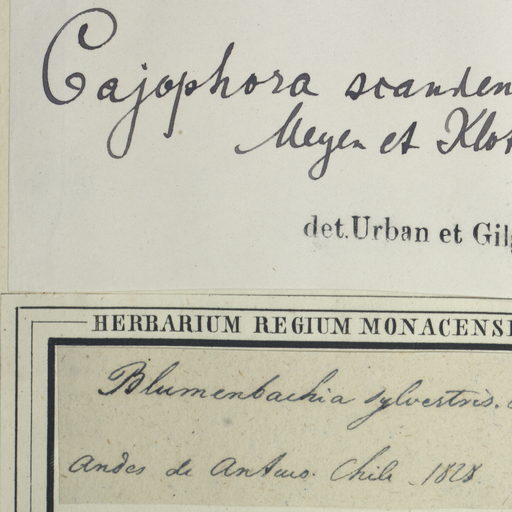 Cajophora scanden
Meyen et Klot
det. Urban et Gilg
HERBARIUM REGIUM MONACENSI
Blumenbachia sylvestris.
Andes de Antuco. Chile. 1828